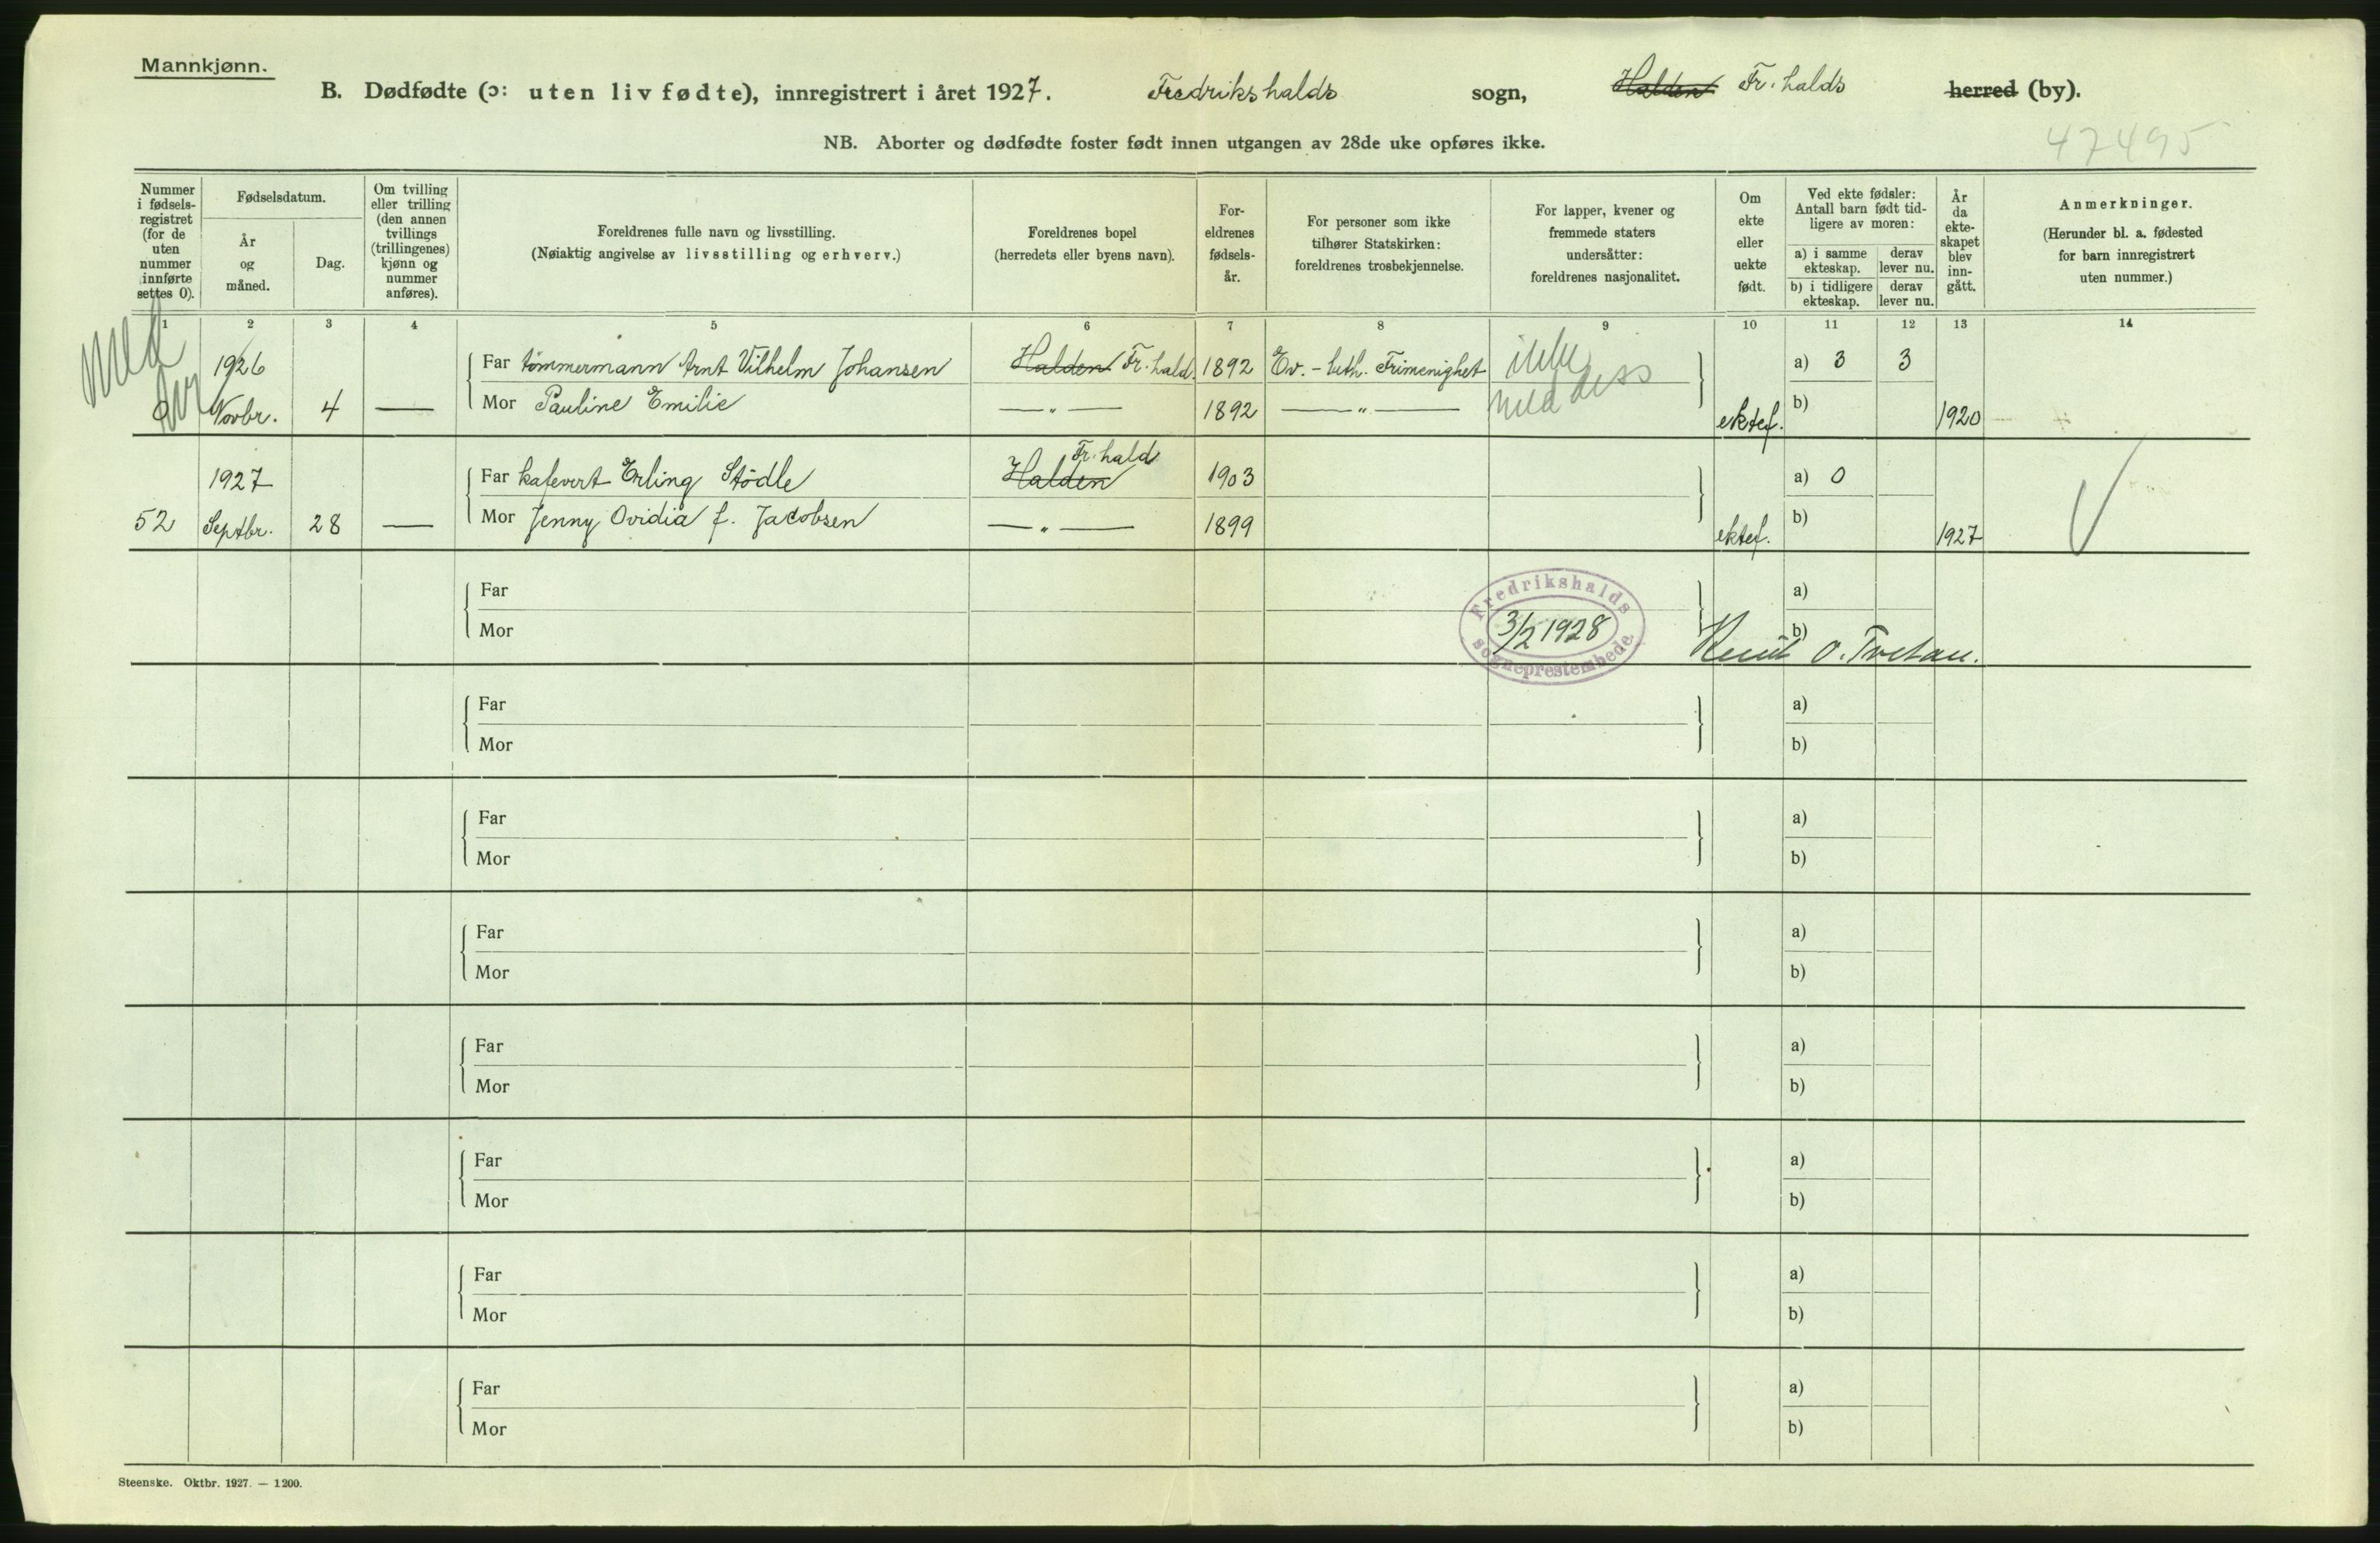 Mannkjønn.
B. Dødfødte (ɔ: uten liv fødte), innregistrert i året 1927. Fredrikshalds sogn, Halden Fr.halds herred (by).
NB. Aborter og dødfødte foster født innen utgangen av 28de uke opføres ikke.
47495
Nummer i fødsels-registret (for de uten nummer innførte settes 0).
Fødselsdatum.
År og måned.
Dag.
Om tvilling eller trilling (den annen tvillings (trillingenes) kjønn og nummer anføres).
Foreldrenes fulle navn og livsstilling.
(Nøiaktig angivelse av livsstilling og erhverv.)
Foreldrenes bopel
(herredets eller byens navn).
For-eldrenes fødsels-år.
For personer som ikke tilhører Statskirken: foreldrenes trosbekjennelse.
For lapper, kvener og fremmede staters undersåtter: foreldrenes nasjonalitet.
Om ekte eller uekte født.
Ved ekte fødsler: Antall barn født tid-ligere av moren:
a) i samme ekteskap.
derav lever nu.
b) i tidligere ekteskap.
derav lever nu.
År da ekte-skapet blev inn-gått.
Anmerkninger.
(Herunder bl. a. fødested for barn innregistrert uten nummer.)
1 2 3 4 5 6 7 8 9 10 11 12 13 14
1926 Far tømmermann Arnt Vilhelm Johansen Halden Fr.hald. 1892 Ev.-luth. Frimenighet ikke a) 3 3
0 Novbr. 4 — Mor Pauline Emilie —„— 1892 —„— med ektef. b) 1920
1927 Far kafevert Erling Stödle Halden Fr.hald 1903 a) 0
52 Septbr. 28 — Mor Jenny Ovidia f. Jacobsen —„— 1899 ektef. b) 1927
Far a)
Mor b)
Fredrikshalds
3/2 1928
sogneprestembede
Knut O. Tvetan.
Far a)
Mor b)
Far a)
Mor b)
Far a)
Mor b)
Far a)
Mor b)
Far a)
Mor b)
Far a)
Mor b)
Far a)
Mor b)
Steenske. Oktbr. 1927. — 1200.